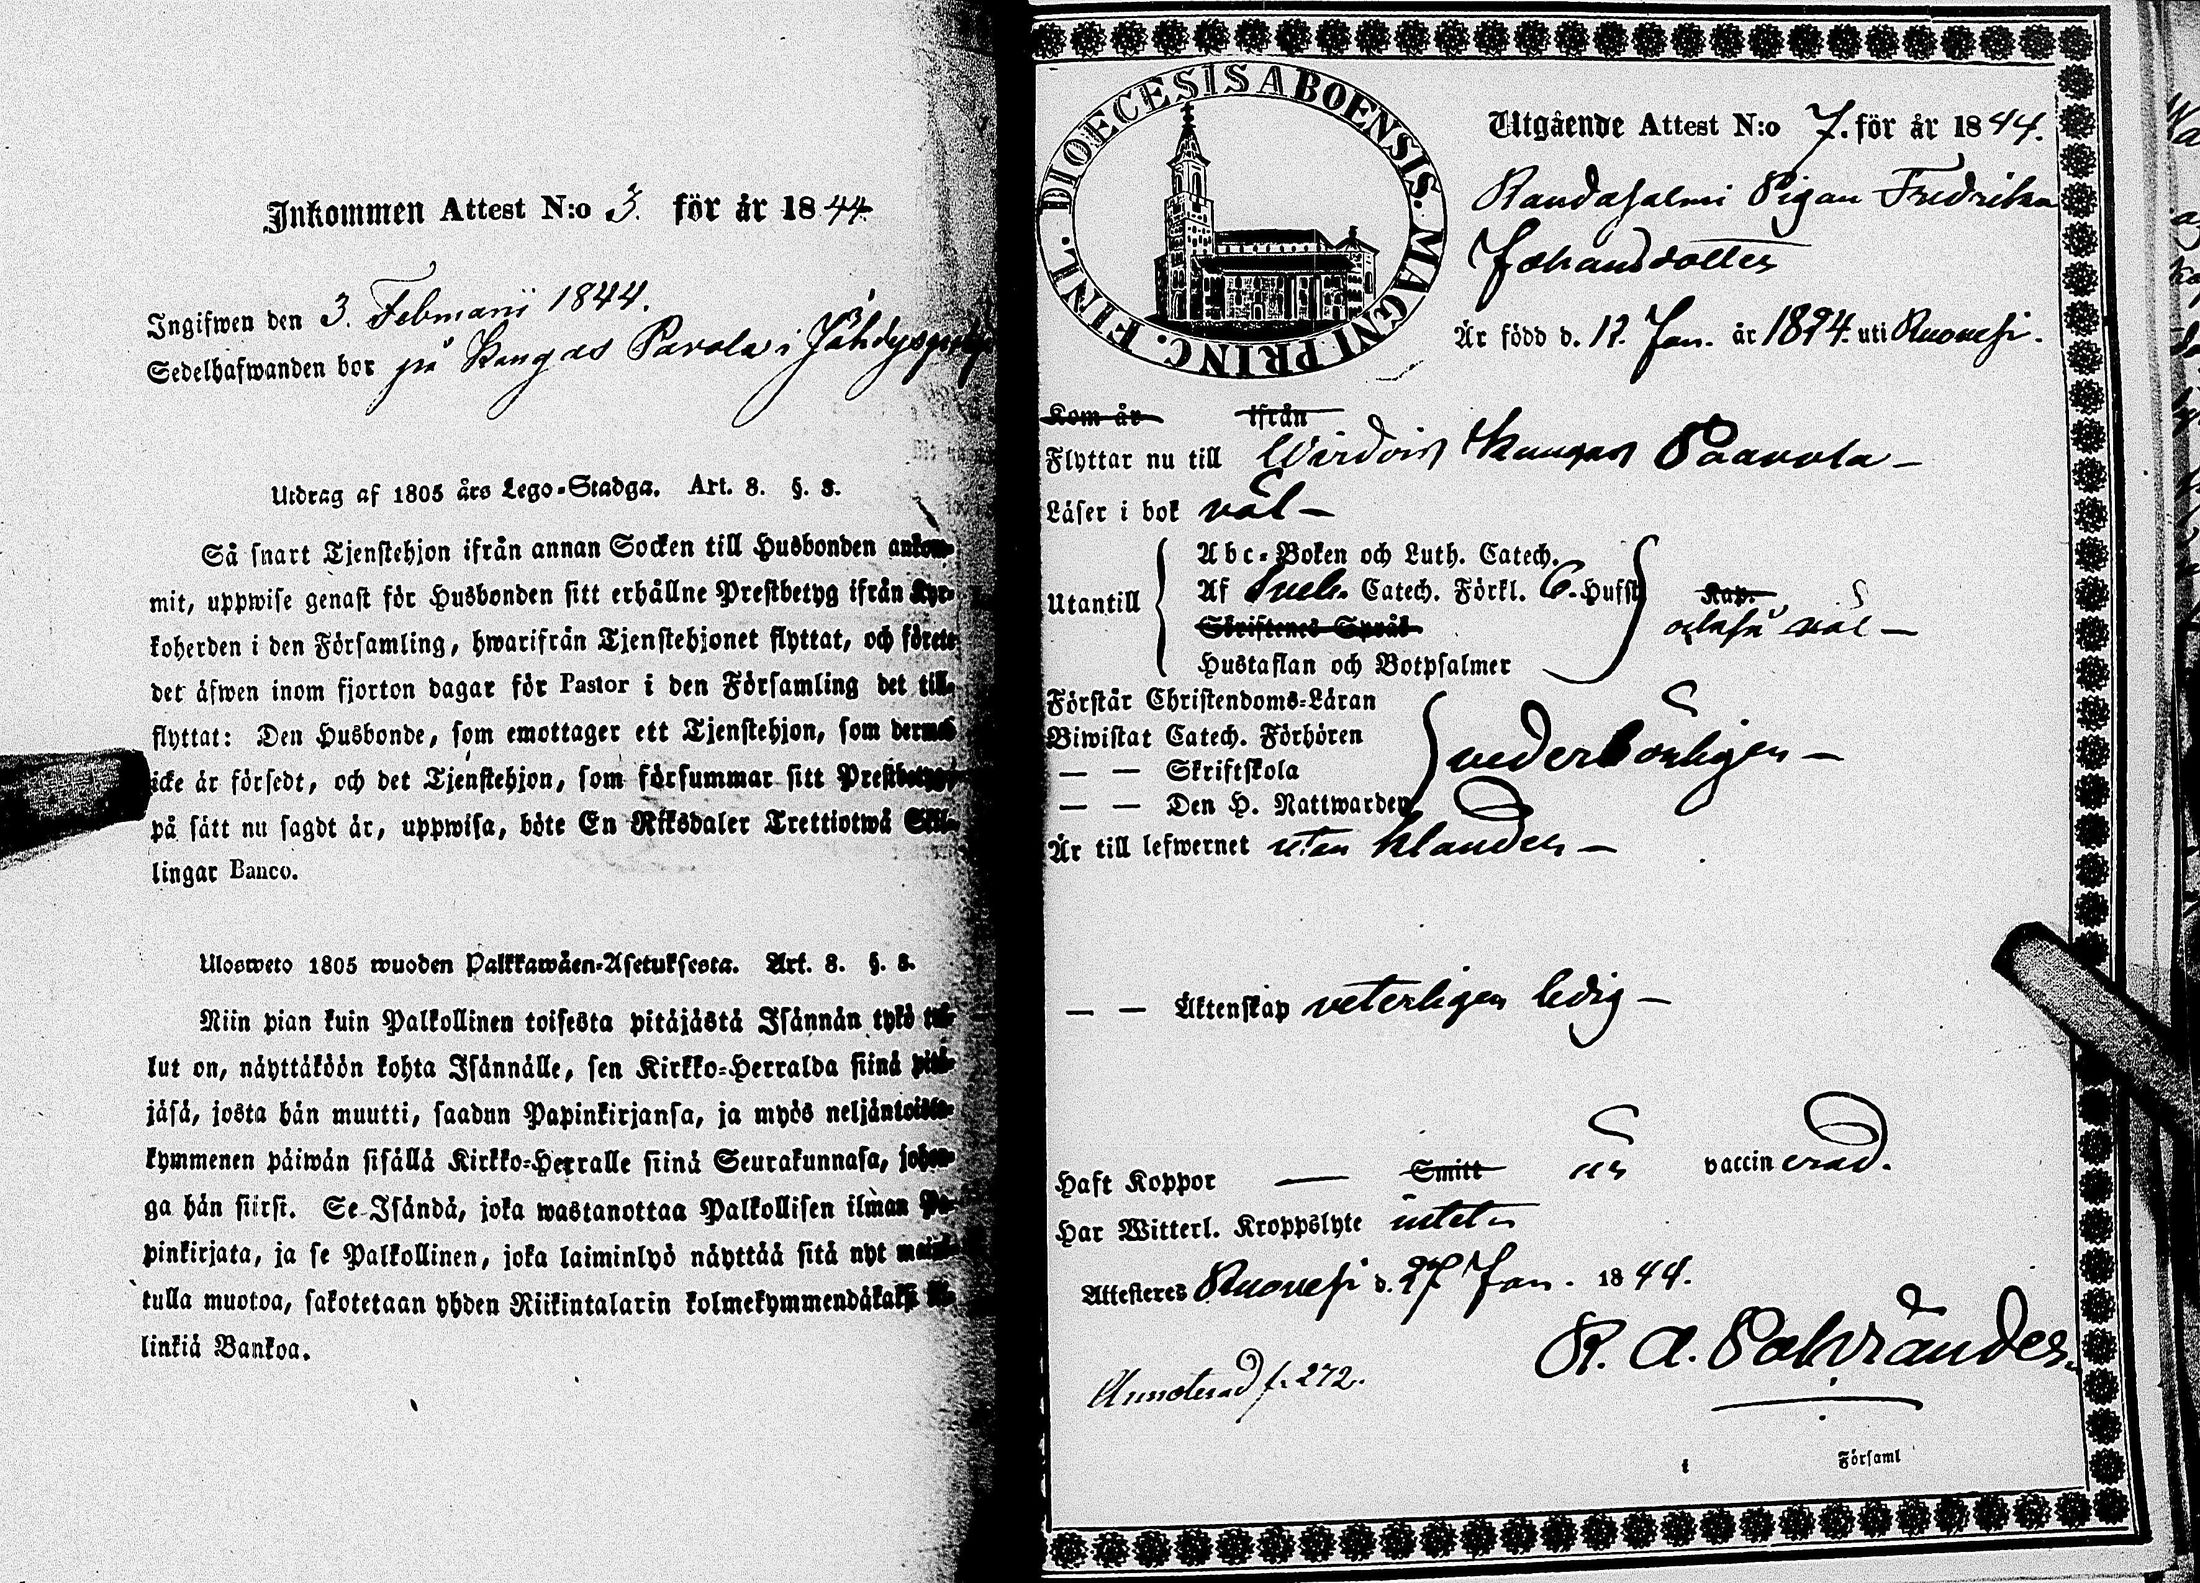 Inkommen Attest N:o 3. för år 1844
Ingifwen den 3. Februarii 1844.
Sedelhafwanden bor på Kangas Pavola i
Utdrag af 1805 års Lego-Stadga. Art. 8. §. 8.
Så snart Tjenstehjon ifrån annan Socken till Husbonden ankom-
mit, uppwise genast för Husbonden sitt erhållne Prestbetyg ifrån Kyr-
koherden i den Församling, hwarifrån Tjenstehjonet flyttat, och förete
det äfwen inom fjorton dagar för Pastor i den Församling det till-
flyttat: Den Husbonde, som emottager ett Tjenstehjon, som dermed
icke är försedt, och det Tjenstehjon, som försummar sitt Prestbetyg,
på sätt nu sagdt är, uppwisa, böte En Riksdaler Trettiotwå Skil-
lingar Banco.
Ulosweto 1805 wuoden Palkkawäen-Asetuksesta. Art. 8. §. 8.
Niin pian kuin Palkollinen toisesta pitäjästä Isännän tykö tul-
lut on, näyttäköön kohta Isännälle, sen Kirkko-Herralda siinä pitä-
jäsä, josta hän muutti, saadun Papinkirjansa, ja myös neljäntoista-
kymmenen päiwän sisällä Kirkko-Herralle siinä Seurakunnasa, johon-
ga hän siirsi. Se Isändä, joka wastanottaa Palkollisen ilman Pa-
pinkirjata, ja se Palkollinen, joka laiminlyö näyttää sitä nyt maini-
tulla muotoa, sakotetaan yhden Riikintalarin kolmekymmendäkaksi kil-
linkiä Bankoa.
DIOECESIS ABOENSIS. MAGNI PRINC. FINL.
Utgående Attest N:o 7. för år 1844.
Randasalmi Pigan Fredrika
Johansdotter
Är född d. 12. Jan. år 1824. uti Ruovesi.
Kom år ifrån
Flyttar nu till Wirdois Kangas Paavola –
Läser i bok väl –
Utantill
Abc-Boken och Luth. Catech.
Af Sveb. Catech. Förkl. 6. Hufst
Kap.
Skriftenes Språk
väl –
Hustaflan och Botpsalmer
Förstår Christendoms-Läran
Biwistat Catech. Förhören
— — Skriftskola
vederbörligen –
— — Den H. Nattwarden
Är till lefwernet utan klander –
— — Äktenskap veterligen ledig –
Haft Koppor — Smitt är vaccinerad.
Har Witterl. Kroppslyte intet
Attesteres Ruovesi d. 27 Jan. 1844.
Annoterad f. 272.
Församl